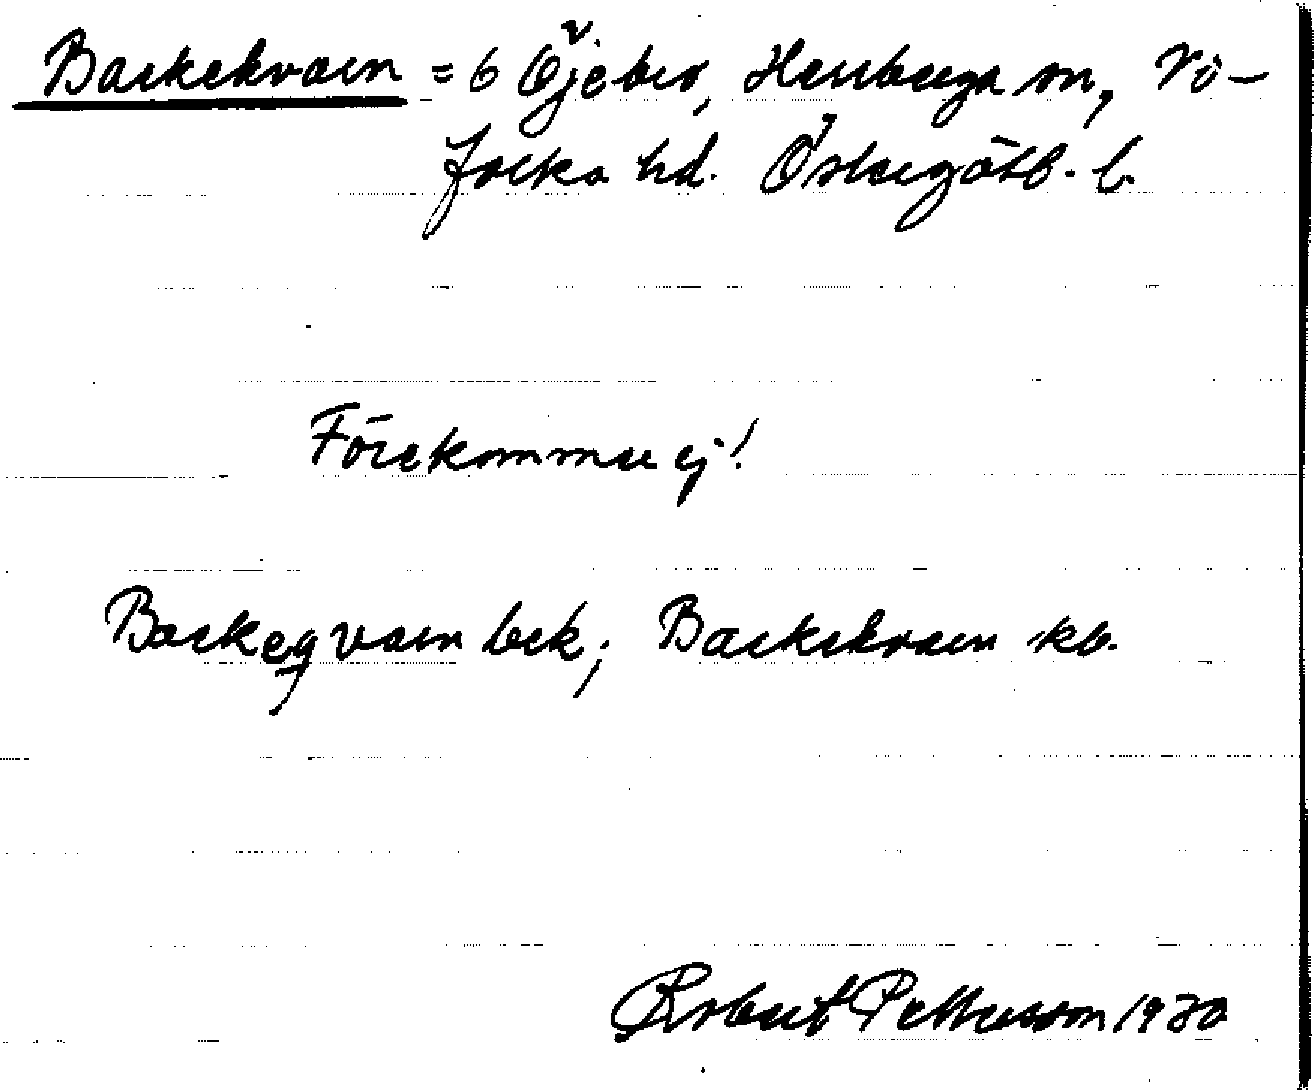 Backekvarn = 6 Öjebro, Herrberga sn, Vi-
folka hd. Östergötl. l.
Förekommer ej!
Backeqvarn bek; Backekvarn kb.
Robert Pettersson 1930